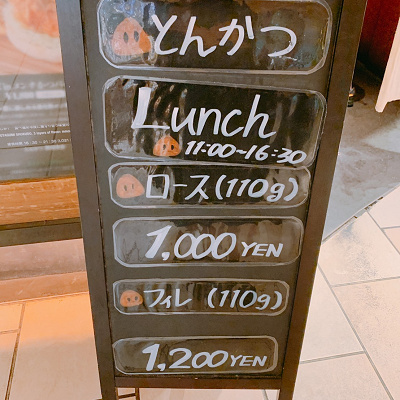 とんかつ
Lunch
11:00~16:30
ロース(110g)
1,000 YEN
フィレ (110g)
1,200 YEN